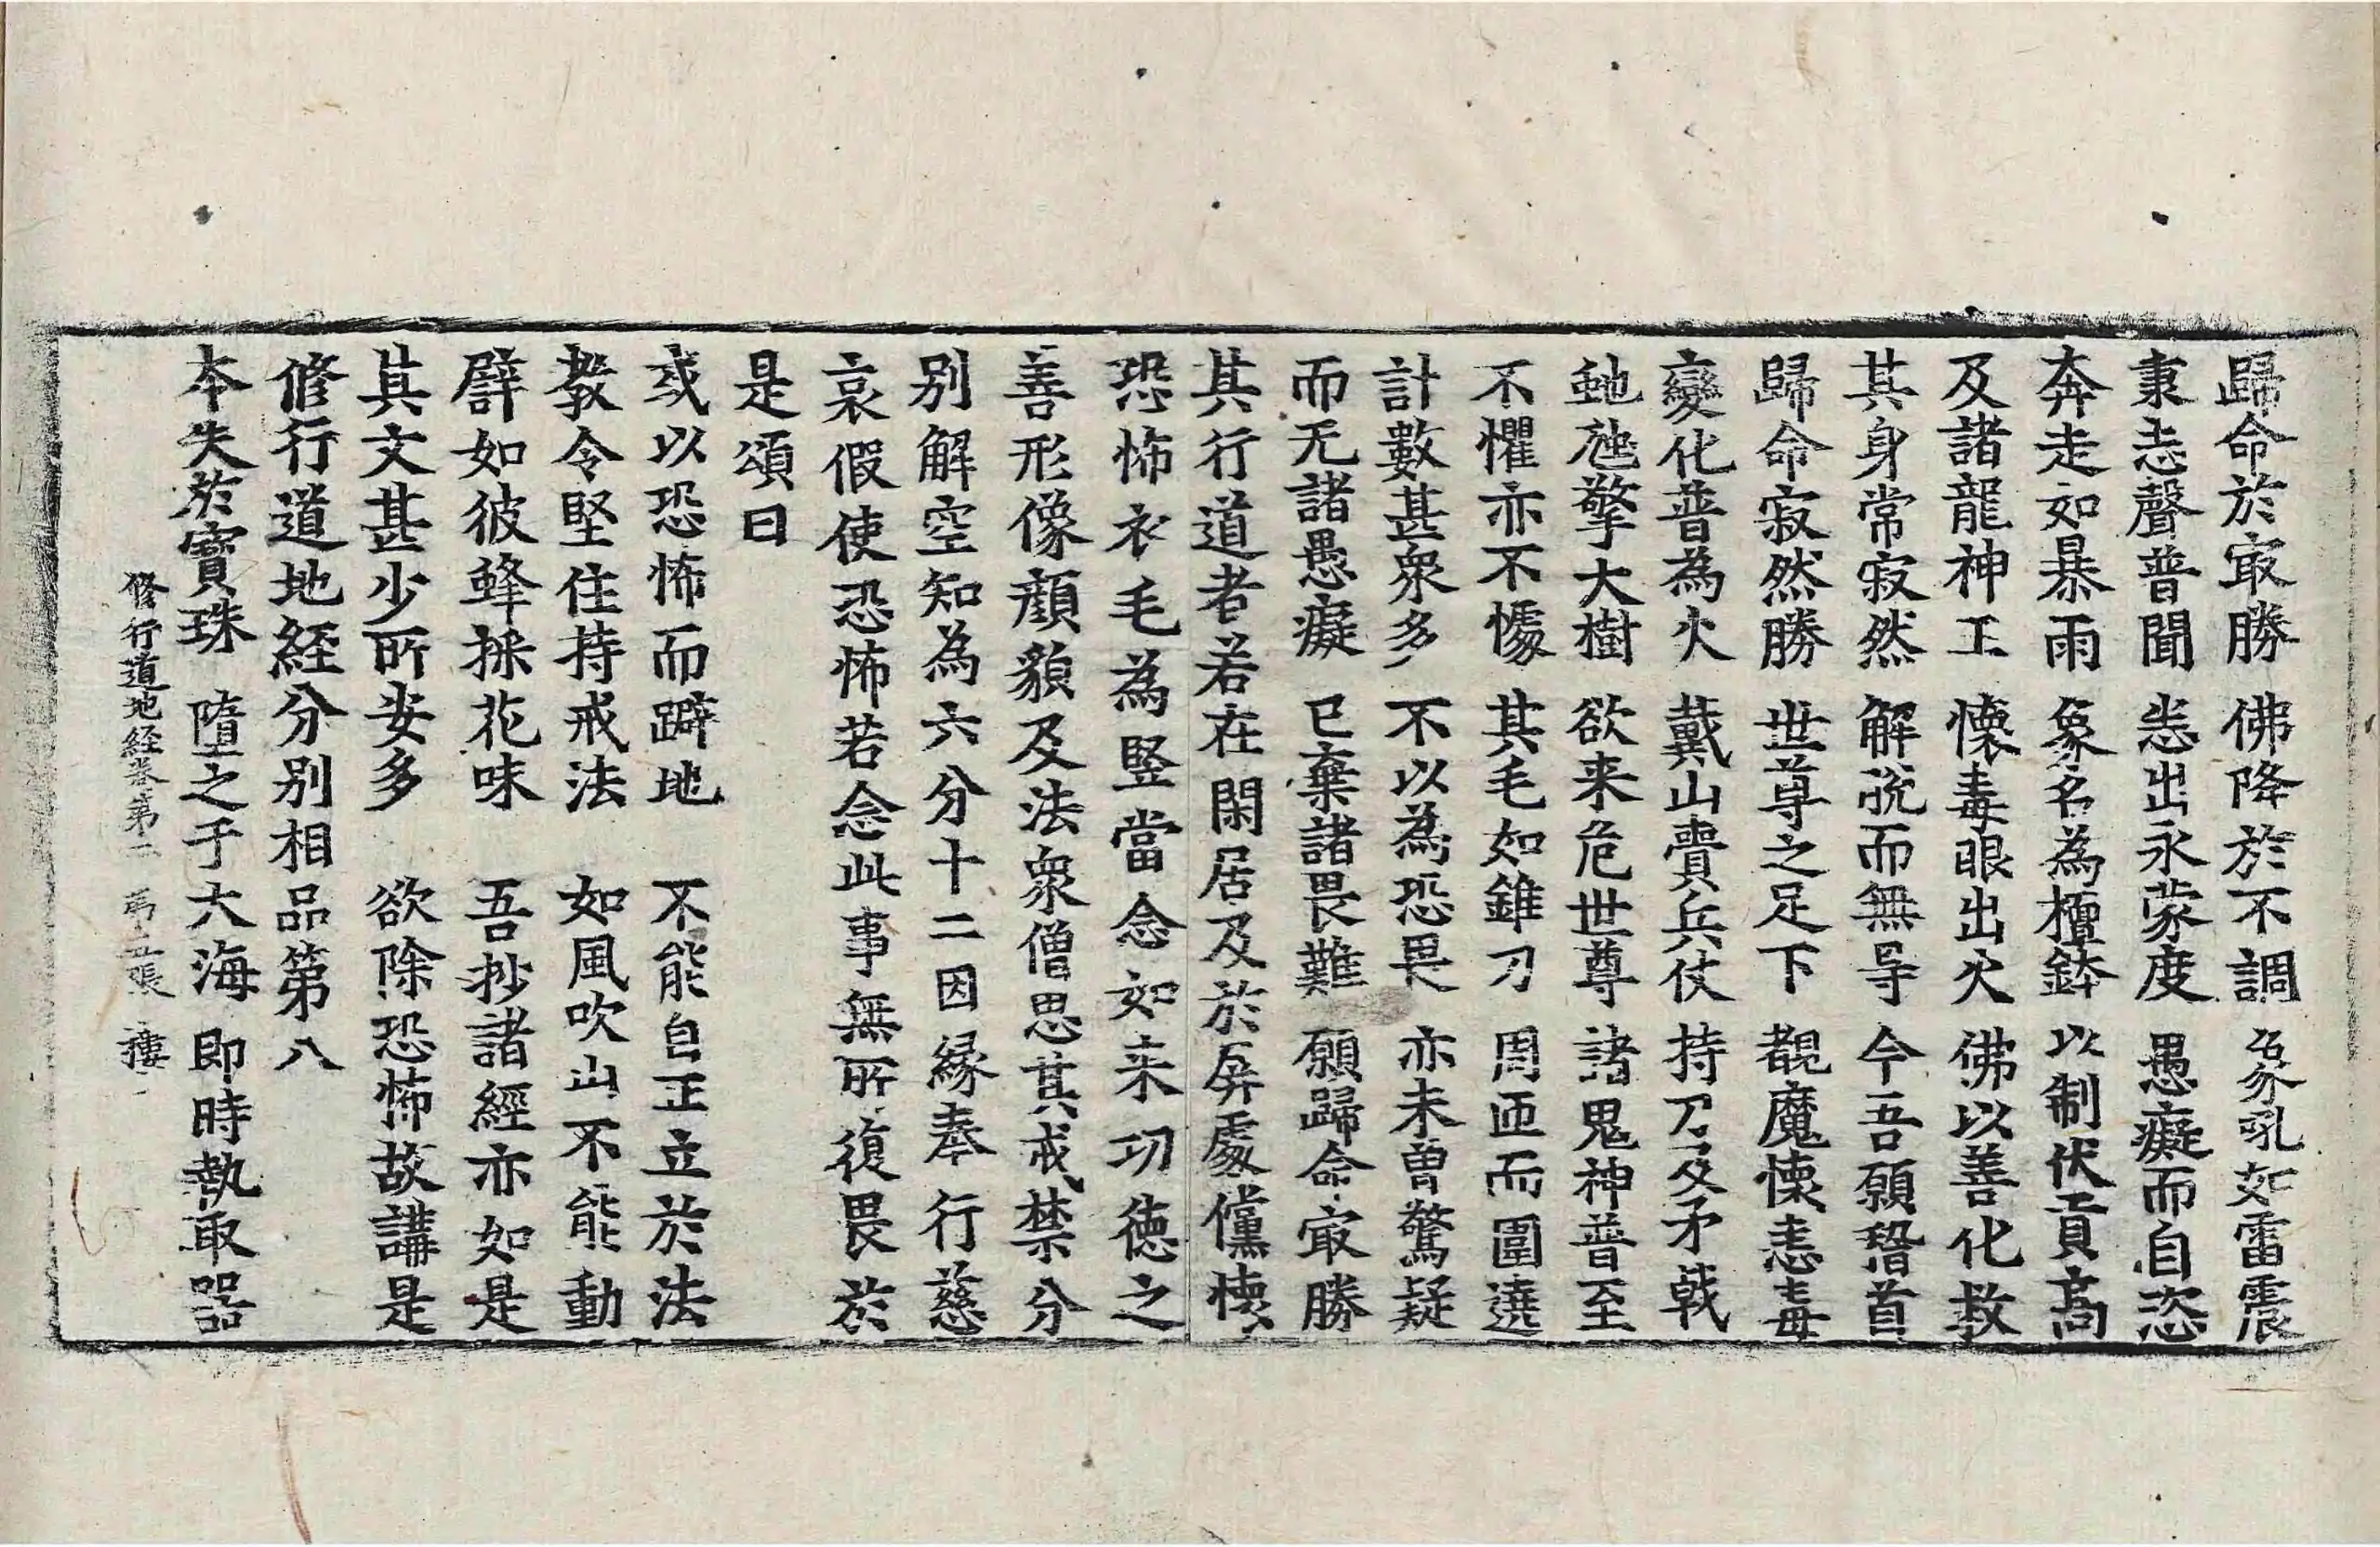 歸命於㝡勝 佛降於不調 象吼如雷震
秉志聲普聞 恙出永蒙度 愚癡而自恣
奔走如暴雨 象名為檀鉢 以制伏貢高
及諸龍神王 懷毒眼出火 佛以善化救
其身常寂然 解脫而無㝵 今吾願稽首
歸命寂然勝 世尊之足下 覩魔懷恚毒
變化普為火 戴山賷兵仗 持刀叉矛戟
虵虺擎大樹 欲来危世尊 諸鬼神普至
不懼亦不懅 其毛如錐刀 周匝而圍遶
計數甚衆多 不以為恐畏 亦未曾驚疑
而无諸愚癡 已棄諸畏難 願歸命㝡勝
其行道者若在閑居及於屏處儻懷
恐怖衣毛為竪當念如来功徳之
善形像顔貌及法衆僧思其戒禁分
別解空知為六分十二因緣奉行慈
哀假使恐怖若念此事無所復畏於
是頌曰
或以恐怖而躃地 不能自正立於法
教令堅住持戒法 如風吹山不能動
譬如彼蜂採花味 吾抄諸經亦如是
其文甚少所安多 欲除恐怖故講是
修行道地経分別相品第八
本失於寳珠 墮之于大海 即時執取器
修行道地経卷第二 張 樓